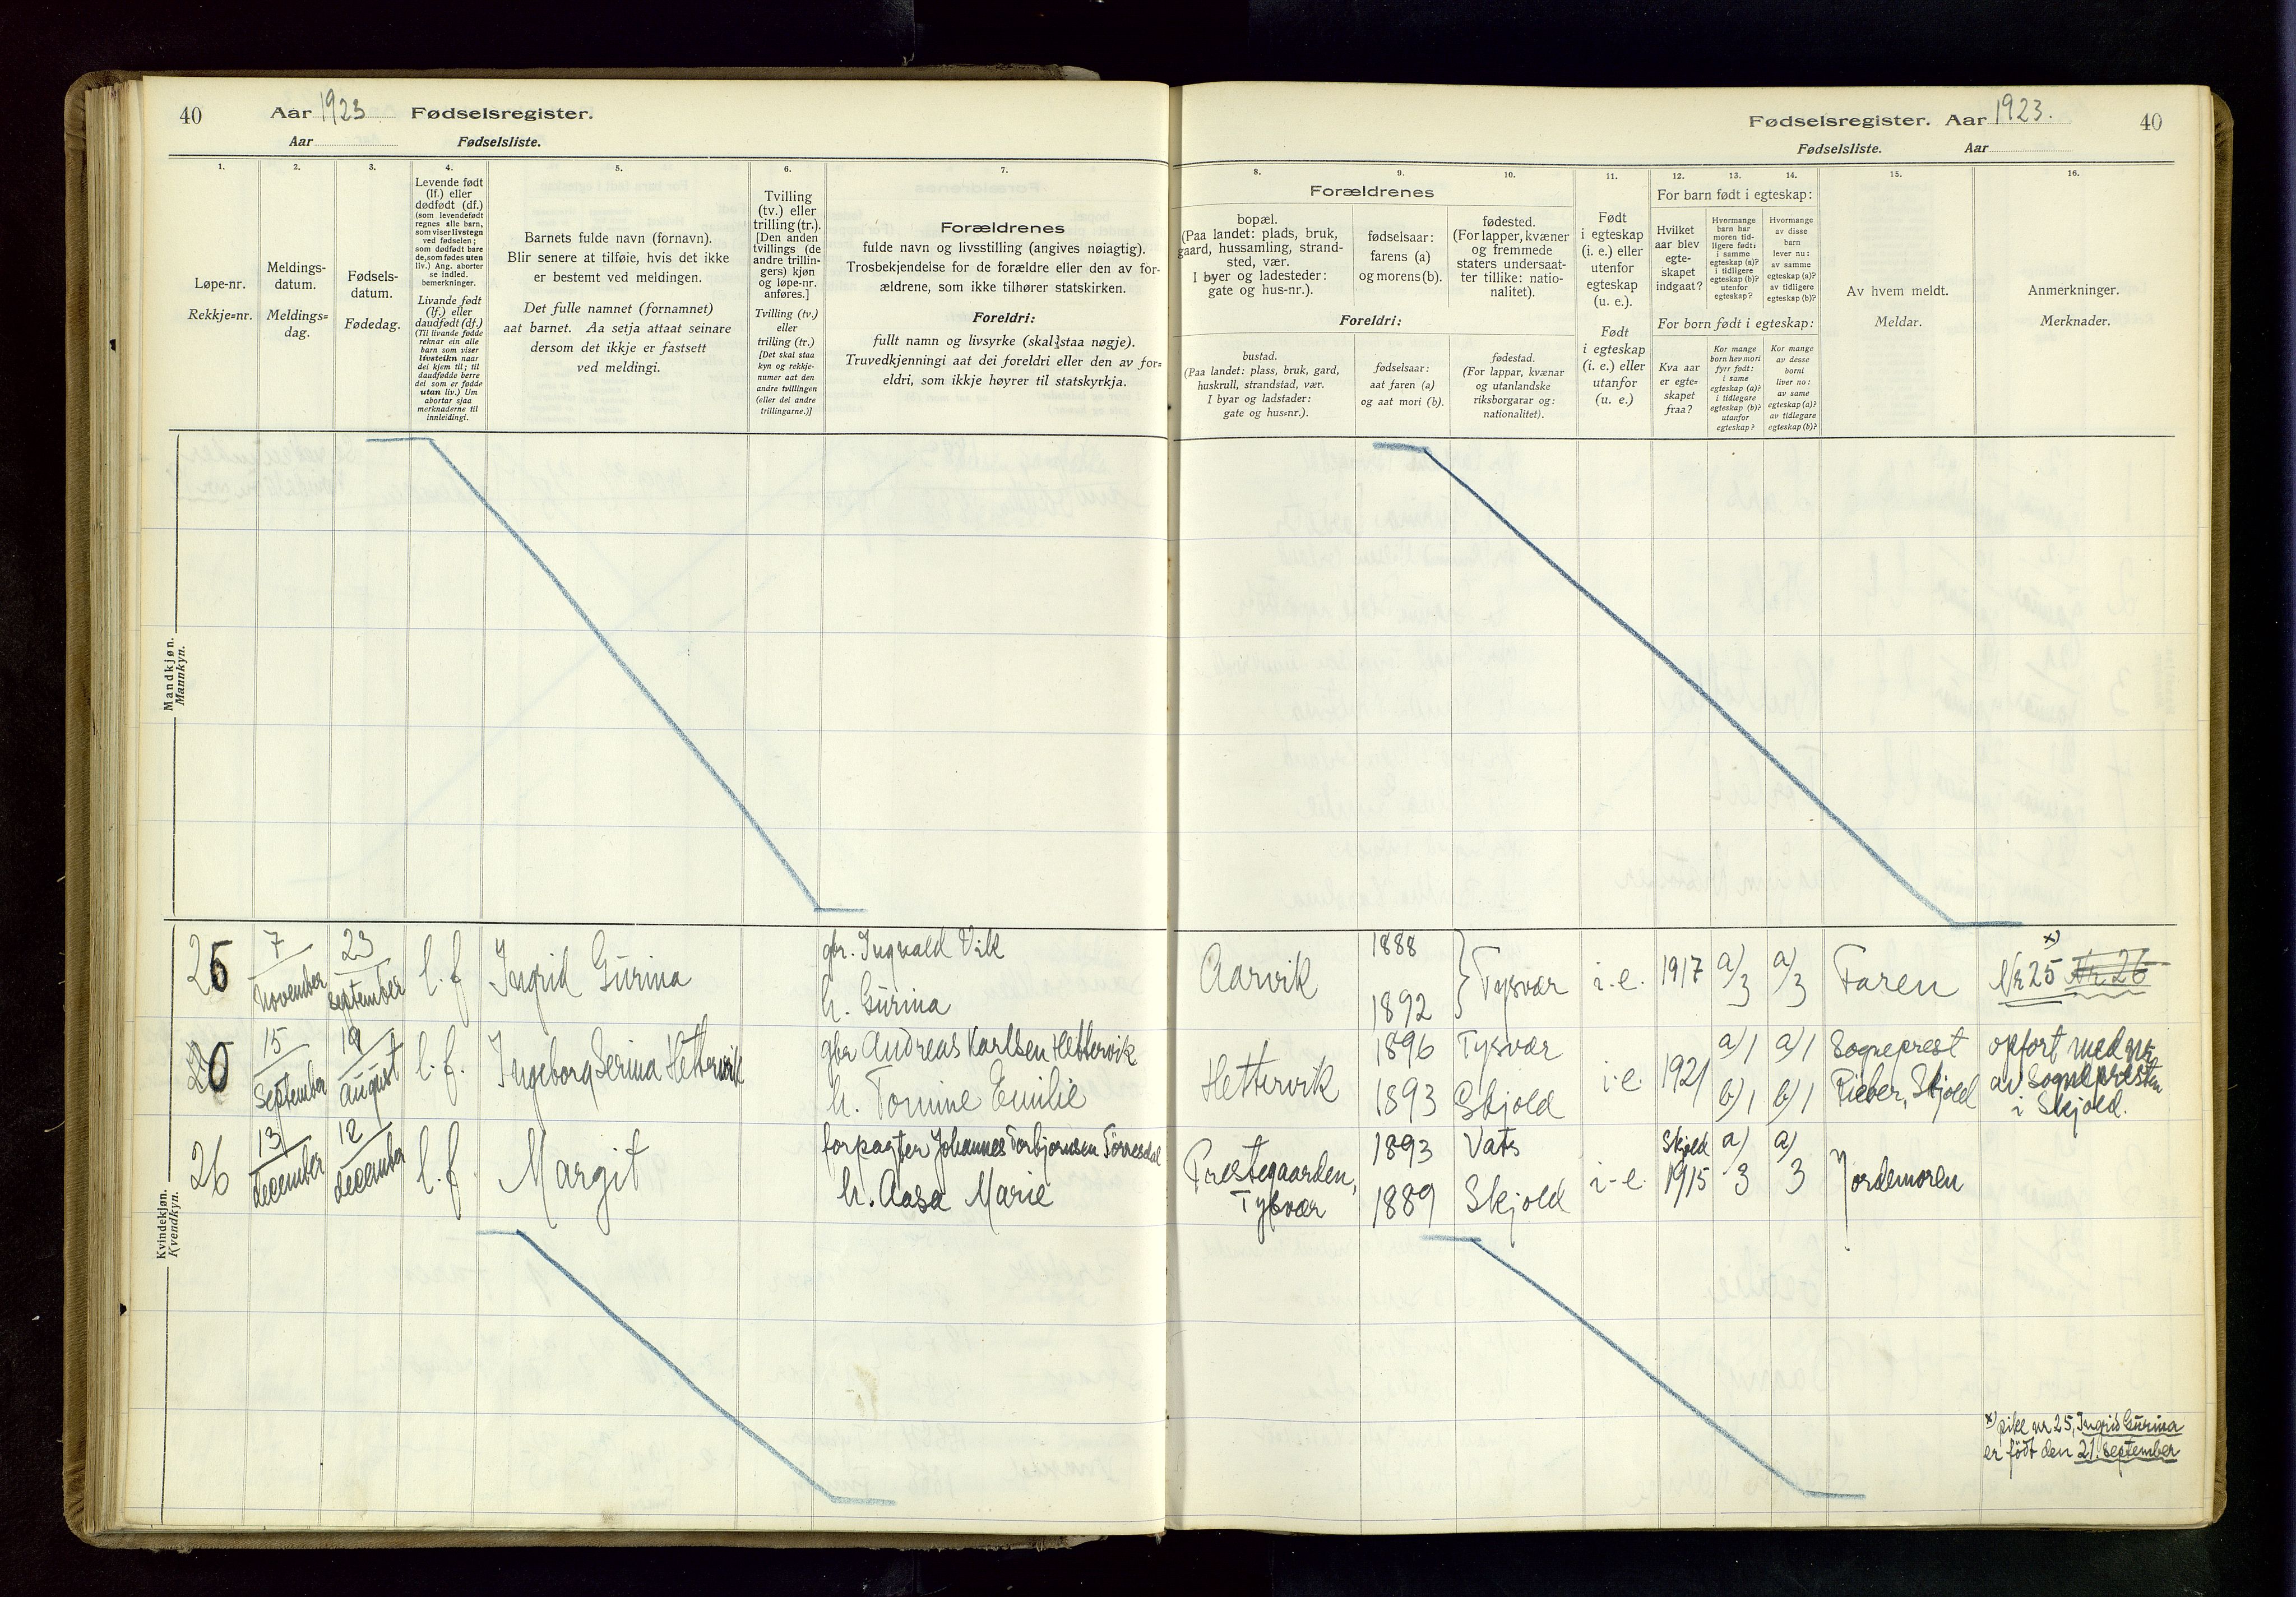 40
Aar 1923 Fødselsregister.
Aar Fødselsliste.
1.
Løpe-nr.
Rekkje=nr.
2.
Meldings-
datum.
Meldings=
dag.
3.
Fødsels-
datum.
Fødedag.
4.
Levende født
(lf.) eller
dødfødt (df.)
(som levendefødt
regnes alle barn,
som viser livstegn
ved fødselen;
som dødfødt bare
de, som fødes uten
liv.) Ang. aborter
se indled.
bemerkninger.
Livande født
(lf.) eller
daudfødt (df.)
(Til livande fødde
reknar ein alle
barn som viser
livsteikn naar
dei kjem til; til
daudfødde berre
dei som er fødde
utan liv.) Um
abortar sjaa
merknaderne til
innleidingi.
5.
Barnets fulde navn (fornavn).
Blir senere at tilføie, hvis det ikke
er bestemt ved meldingen.
Det fulle namnet (fornamnet)
aat barnet. Aa setja attaat seinare
dersom det ikkje er fastsett
ved meldingi.
6.
Tvilling
(tv.) eller
trilling (tr.).
[Den anden
tvillings (de
andre trillin-
gers) kjøn
og løpe-nr.
anføres.]
Tvilling (tv.)
eller
trilling (tr.)
[Det skal staa
kyn og rekkje-
numer aat den
andre tvillingen
(eller dei andre
trillingarne.)]
7.
Forældrenes
fulde navn og livsstilling (angives nøiagtig).
Trosbekjendelse for de forældre eller den av for-
ældrene, som ikke tilhører statskirken.
Foreldri:
fullt namn og livsyrke (skal staa nøgje).
Truvedkjenningi aat dei foreldri eller den av for=
eldri, som ikkje høyrer til statskyrkja.
Fødselsregister. Aar 1923.
40
Fødselsliste. Aar
8.
Forældrenes
bopæl.
(Paa landet: plads, bruk,
gaard, hussamling, strand-
sted, vær.
I byer og ladesteder:
gate og hus-nr.).
9.
fødselsaar:
farens (a)
og morens (b).
10.
fødested.
(For lapper, kvæner
og fremmede
staters undersaat-
ter tillike: natio-
nalitet).
Foreldri:
bustad.
(Paa landet: plass, bruk, gard,
huskrull, strandstad, vær.
I byar og ladstader:
gate og hus=nr.).
fødselsaar:
aat faren (a)
og aat mori (b).
fødestad.
(For lappar, kvænar
og utanlandske
riksborgarar og:
nationalitet).
11.
Født
i egteskap
(i. e.) eller
utenfor
egteskap
(u. e.).
Født
i egteskap
(i. e.) eller
utanfor
(u. e.)
12. 13. 14.
For barn født i egteskap:
Hvilket
aar blev
egte-
skapet
indgaat?
Hvormange
barn har
moren tid-
ligere født:
i samme
egteskap (a)?
i tidligere
egteskap (b)?
utenfor
egteskap?
Hvormange
av disse
barn
lever nu:
av samme
egteskap (a)?
av tidligere
egteskap (b)?
For born født i egteskap:
Kva aar
er egte=
skapet
fraa?
Kor mange
born hev mori
fyrr født:
i same
egteskap (a)?
i tidlegare
egteskap (b)?
utanfor
egteskap?
Kor mange
av desse
borni
liver no:
av same
egteskap (a)?
av tidlegare
egteskap (b)?
15.
Av hvem meldt.
Meldar.
16.
Anmerkninger.
Merknader.
Mandkjøn.
Mannkyn.
Kvindekjøn.
Kvendkyn.
25 7 november 23 september l.f Ingrid Gürina
gbr. Ingvald Vik
h. Gürina
Aarvik 1888 1892 Tysvær i.e. 1917 a) 3 a) 3 Faren
x) Nr 25 Nr. 26
20 15 september 19 august l.f. Ingeborg Serina Hettervik
gbr Andreas Karlsen Hettervik
h. Tomine Emilie
Hettervik 1896 Tysvær
1893 Skjold
i.e. 1921 a) 1 a) 1
b) 1 b) 1
Sogneprest
Rieber, Skjold
opført med nr
av Sognepresten
i Skjold.
26 13 december 12 december l.f. Margit
forpagter Johannes Torbjørnsen Førresdal
h. Aasa Marie
Prestegaarden,
Tysvær
1893 Vats
1889 Skjold
i.e. Skjold
1915 a) 3 a) 3 Jordemoren
x) pike nr 25, Ingrid Gürina
er født den 21. september